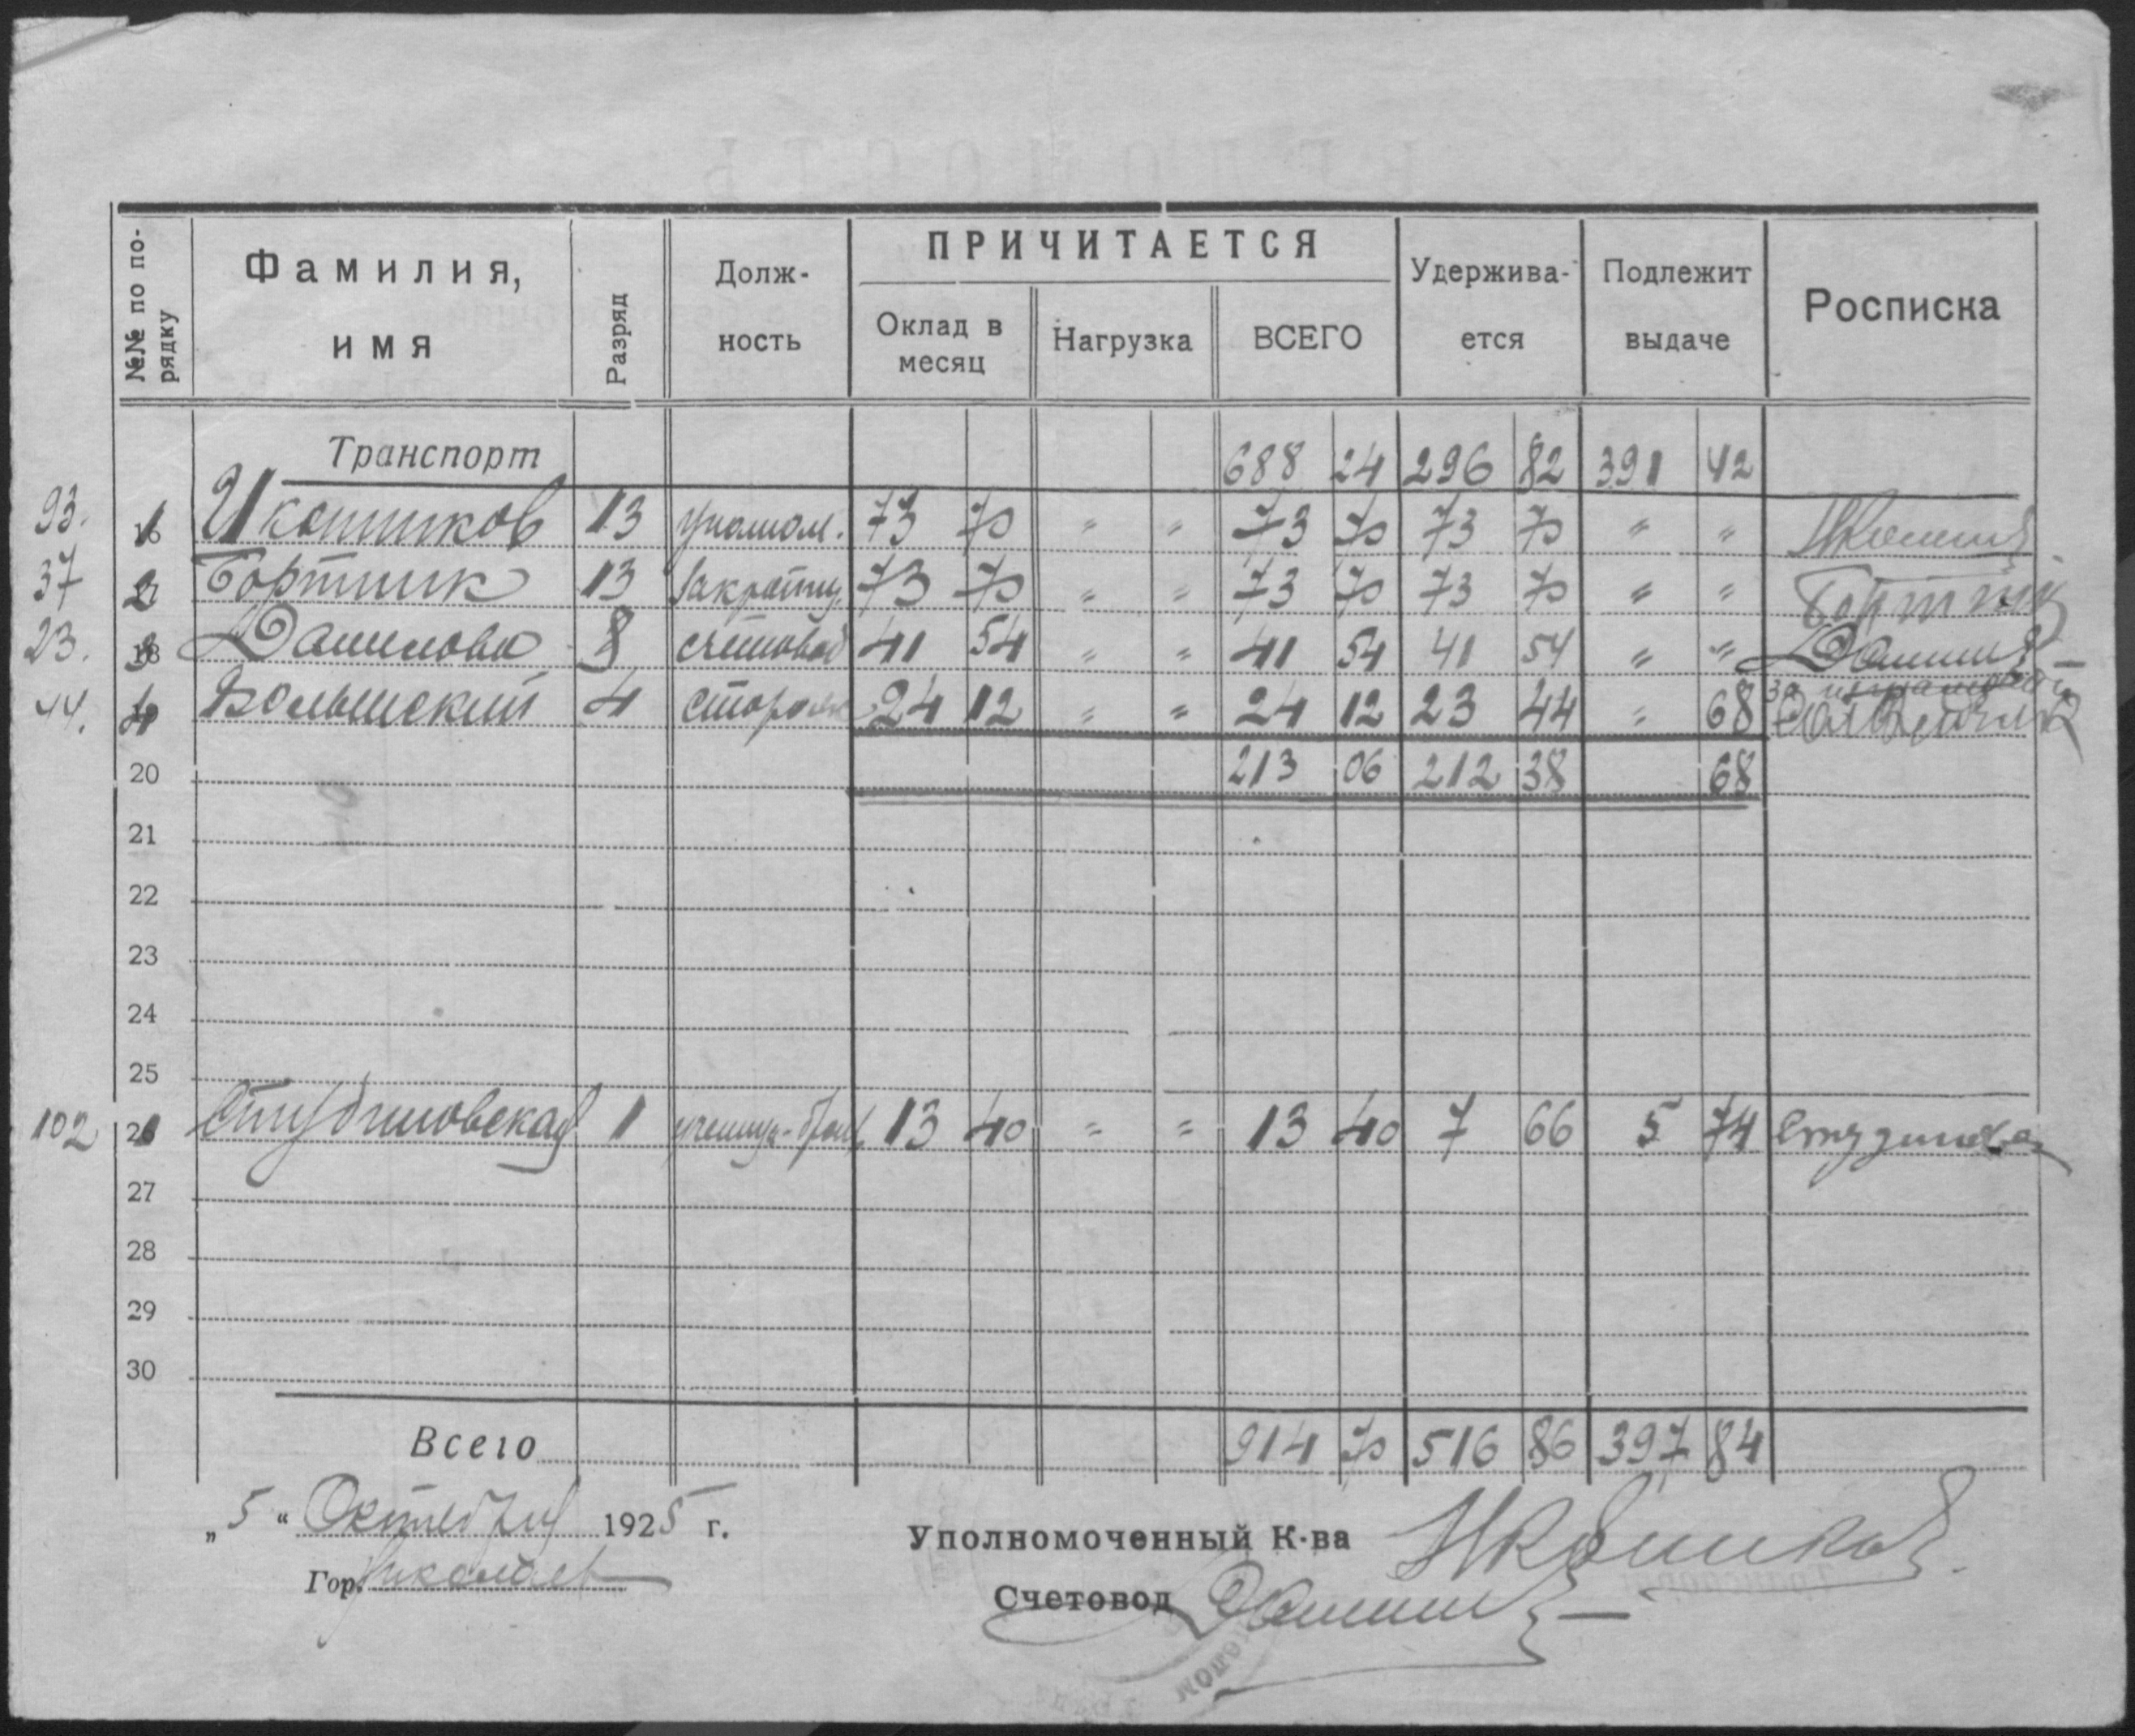 №№ по по-рядку
Фамилия, имя
Разряд
Долж-ность
ПРИЧИТАЕТСЯ
Оклад в месяц
Нагрузка
ВСЕГО
Удержива-ется
Подлежит выдаче
Росписка
Транспорт 688 24 296 82 391 42
93. 1 Икотников 13 уполном. 73 70 " " 73 70 73 70 " "
37 2 Бортник 13 73 70 " " 73 70 73 70 " " Бортник
23. 3 8 счетовод 41 54 " " 41 54 41 54 " "
44. 4 Волынский 4 сторож 24 12 " " 24 12 23 44 " 68
20 213 06 212 38 68
21
22
23
24
25
102 26 1 13 40 " " 13 40 7 66 5 74
27
28
29
30
Всего 914 70 516 86 397 84
„ 5 “ Октября 1925 г.
Гор. Николаев
Уполномоченный К-ва
Счетовод